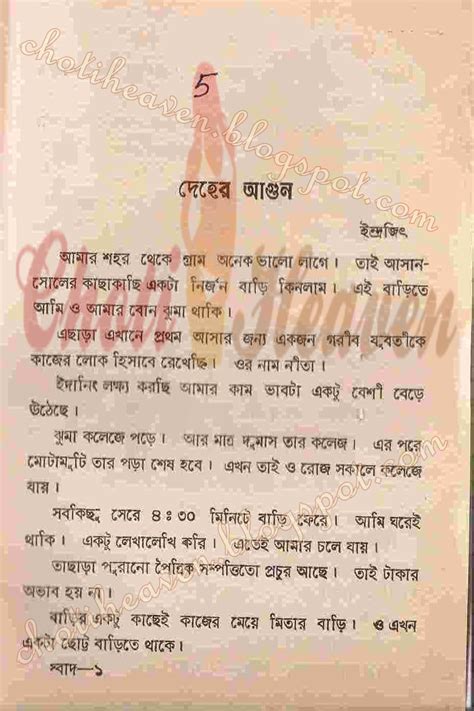 5
দেহের আগুন
ইন্দ্রজিৎ
আমার শহর থেকে গ্রাম অনেক ভালো লাগে। তাই আসান-
সোলের কাছাকাছি একটা নির্জন বাড়ি কিনলাম। এই বাড়িতে
আমি ও আমার বোন ঝুমা থাকি।
এছাড়া এখানে প্রথম আসার জন্য একজন গরীব যুবতীকে
কাজের লোক হিসাবে রেখেছি। ওর নাম নীতা।
ইদানিং লক্ষ্য করছি আমার কাম ভাবটা একটু বেশী বেড়ে
উঠেছে।
ঝুমা কলেজে পড়ে। আর মাত্র দুমাস তার কলেজ। এর পরে
মোটামুটি তার পড়া শেষ হবে। এখন তাই ও রোজ সকালে কলেজে
যায়।
সবকিছু সেরে ৪ঃ৩০ মিনিটে বাড়ি ফেরে। আমি ঘরেই
থাকি। একটু লেখালেখি করি। এতেই আমার চলে যায়।
তাছাড়া পুরানো পৈত্রিক সম্পত্তিতো প্রচুর আছে। তাই টাকার
অভাব হয় না।
বাড়ির একটু কাছেই কাজের মেয়ে মিতার বাড়ি। ও এখন
একটা ছোট্ট বাড়িতে থাকে।
স্বাদ—১
Choti Heaven
chotiheaven.blogspot.com
chotiheaven.blogspot.com